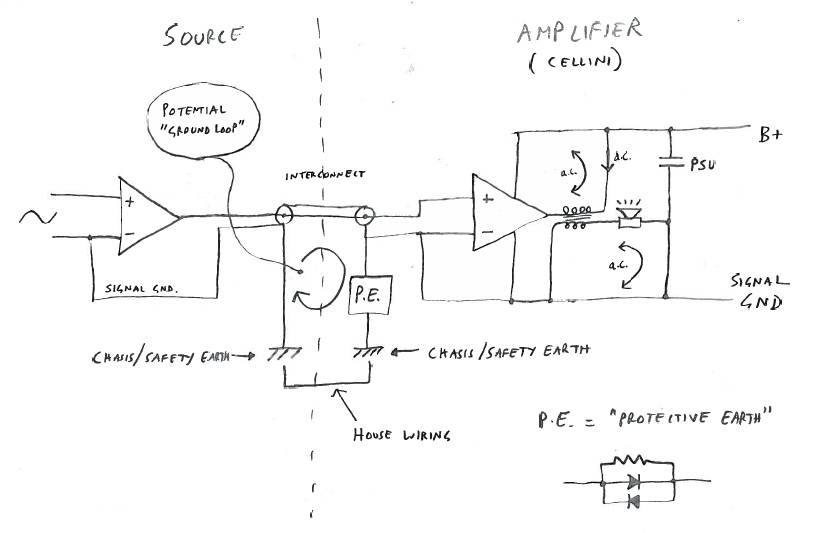 SOURCE
AMPLIFIER
(CELLINI)
POTENTIAL
"GROUND LOOP"
INTERCONNECT
B+
a.c.
d.c.
PSU
+
-
+
-
a.c.
SIGNAL GND.
P.E.
SIGNAL
GND
CHASIS/SAFETY EARTH
CHASIS/SAFETY EARTH
HOUSE WIRING
P.E. = "PROTECTIVE EARTH"